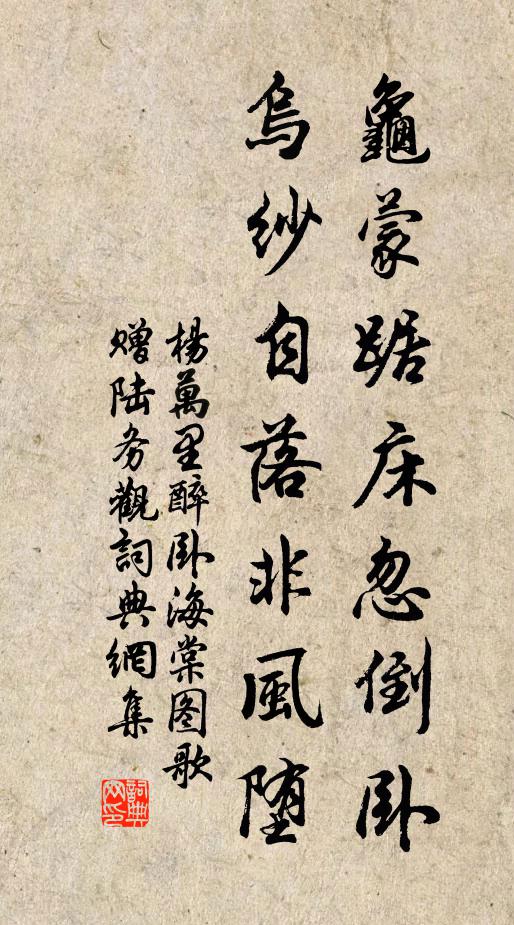 龜蒙踞床忽倒卧
烏紗自落非風墮
楊萬里醉卧海棠图歌
赠陆务觀詞典網集
詞典网印